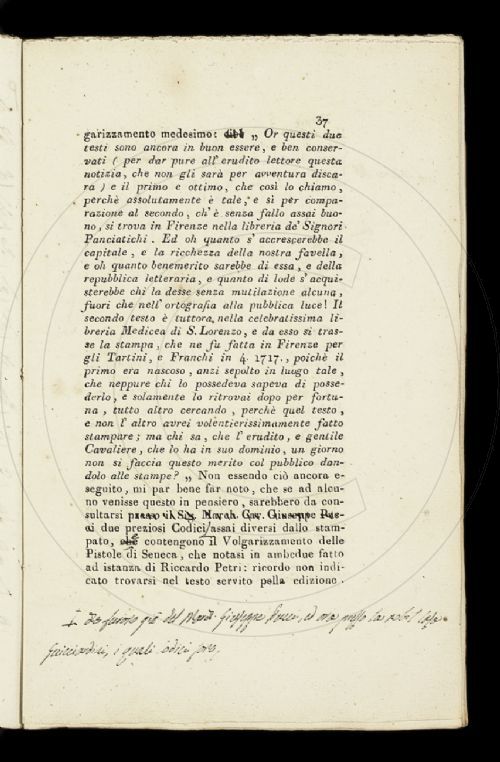 37
garizzamento medesimo: „ Or questi due
testi sono ancora in buon essere, e ben conser-
vati ( per dar pure all' erudito lettore questa
notizia, che non gli sarà per avventura disca-
ra ) e il primo e ottimo, che così lo chiamo,
perchè assolutamente è tale, e sì per compa-
razione al secondo, ch' è senza fallo assai buo-
no, si trova in Firenze nella libreria de' Signori
Panciatichi. Ed oh quanto s' accrescerebbe il
capitale, e la ricchezza della nostra favella,
e oh quanto benemerito sarebbe di essa, e della
repubblica letteraria, e quanto di lode s' acqui-
sterebbe chi la desse senza mutilazione alcuna,
fuori che nell' ortografia alla pubblica luce! Il
secondo testo è tuttora nella celebratissima li-
breria Medicea di S. Lorenzo, e da esso si tras-
se la stampa, che ne fù fatta in Firenze per
gli Tartini, e Franchi in 4. 1717., poichè il
primo era nascoso, anzi sepolto in luogo tale,
che neppure chi lo possedeva sapeva di posse-
derlo, e solamente lo ritrovai dopo per fortu-
na, tutto altro cercando, perchè quel testo,
e non l' altro avrei volentierissimamente fatto
stampare; ma chi sa, che l' erudito, e gentile
Cavaliere, che lo ha in suo dominio, un giorno
non si faccia questo merito col pubblico dan-
dolo alle stampe? „ Non essendo ciò ancora e-
seguito, mi par bene far noto, che se ad alcu-
no venisse questo in pensiero, sarebbero da con-
sultarsi presso il Sig. March. Cav. Giuseppe Puc-
ci due preziosi Codici assai diversi dallo stam-
pato, che contengono il Volgarizzamento delle
Pistole di Seneca, che notasi in ambedue fatto
ad istanza di Riccardo Petri: ricordo non indi-
cato trovarsi nel testo servito pella edizione.
già del March. Giuseppe Pucci, ed ora presso la nobil Casa
Guicciardini, i quali codici